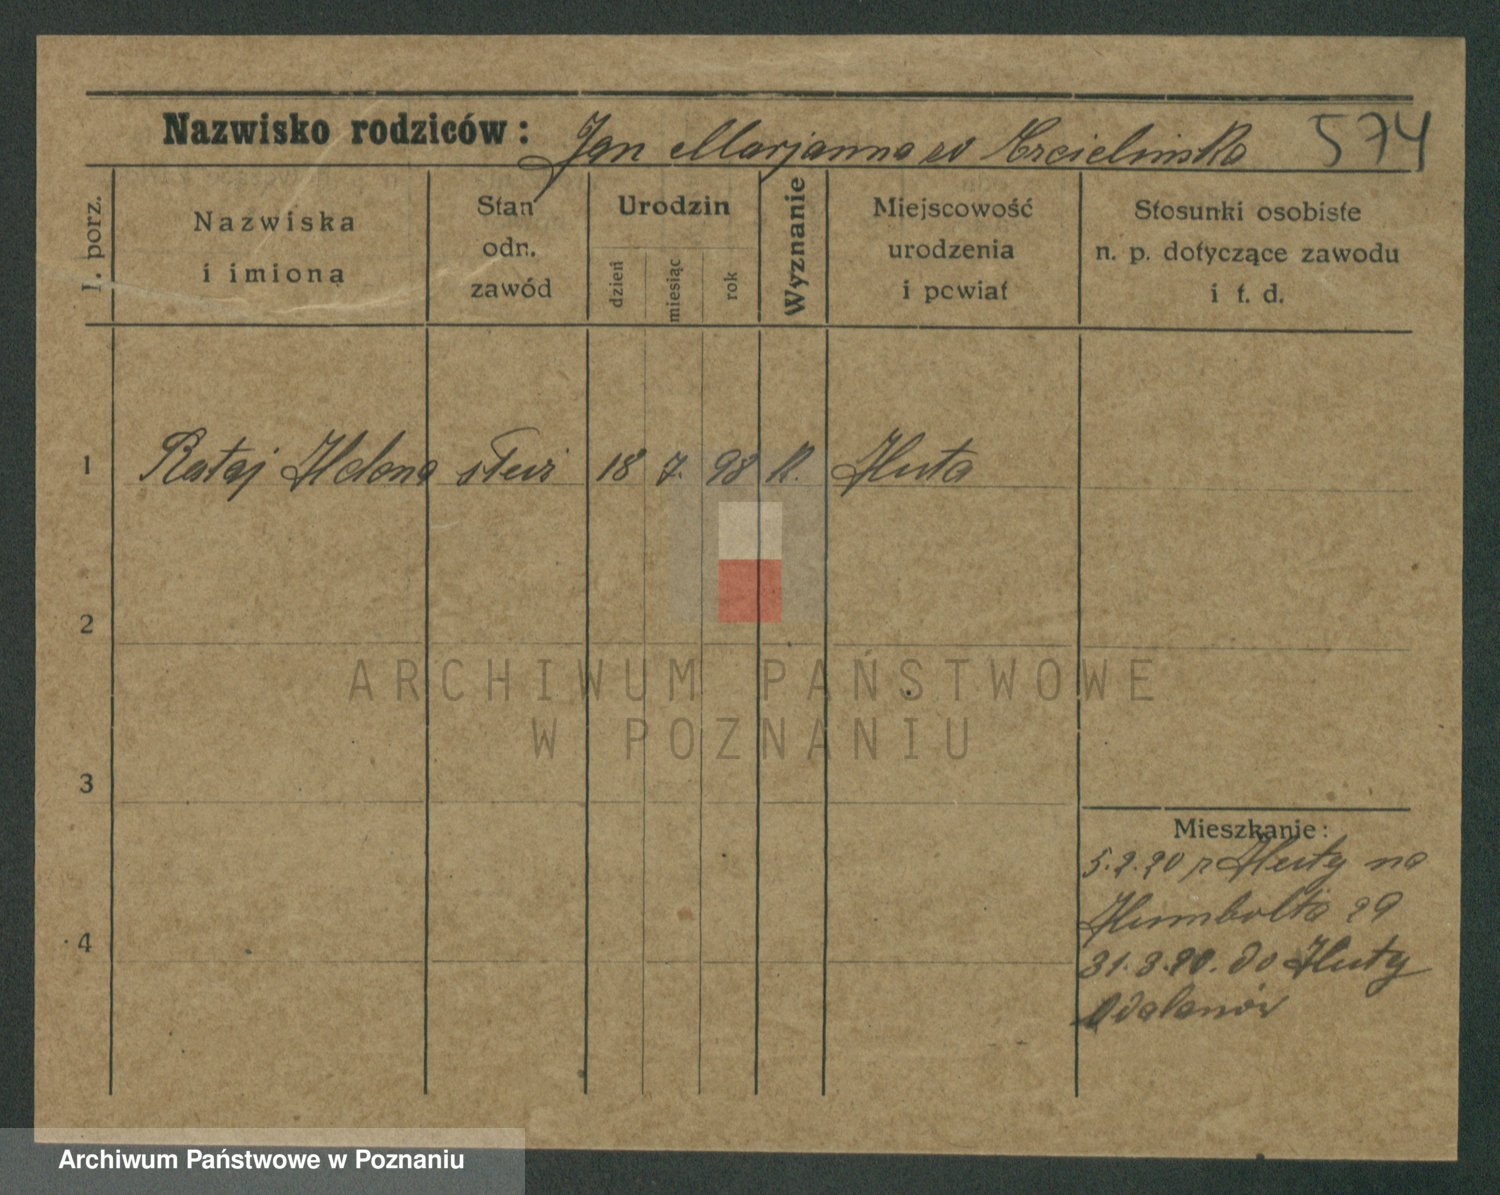 Nazwisko rodziców: Jan Marjanna
574
l. porz.
Nazwiska
i imiona
Stan
odn.
zawód
Urodzin
dzień
miesiąc
rok
Wyznanie
Miejscowość
urodzenia
i powiat
Stosunki osobiste
n. p. dotyczące zawodu
i t. d.
1 Rataj Helena 18 7. 98 K. Huta
2
3
4
Mieszkanie:
5.2.20 z Huty na
Humbolta 29
31.3.20. do Huty
Odolanów
ARCHIWUM PAŃSTWOWE
W POZNANIU
Archiwum Państwowe w Poznaniu